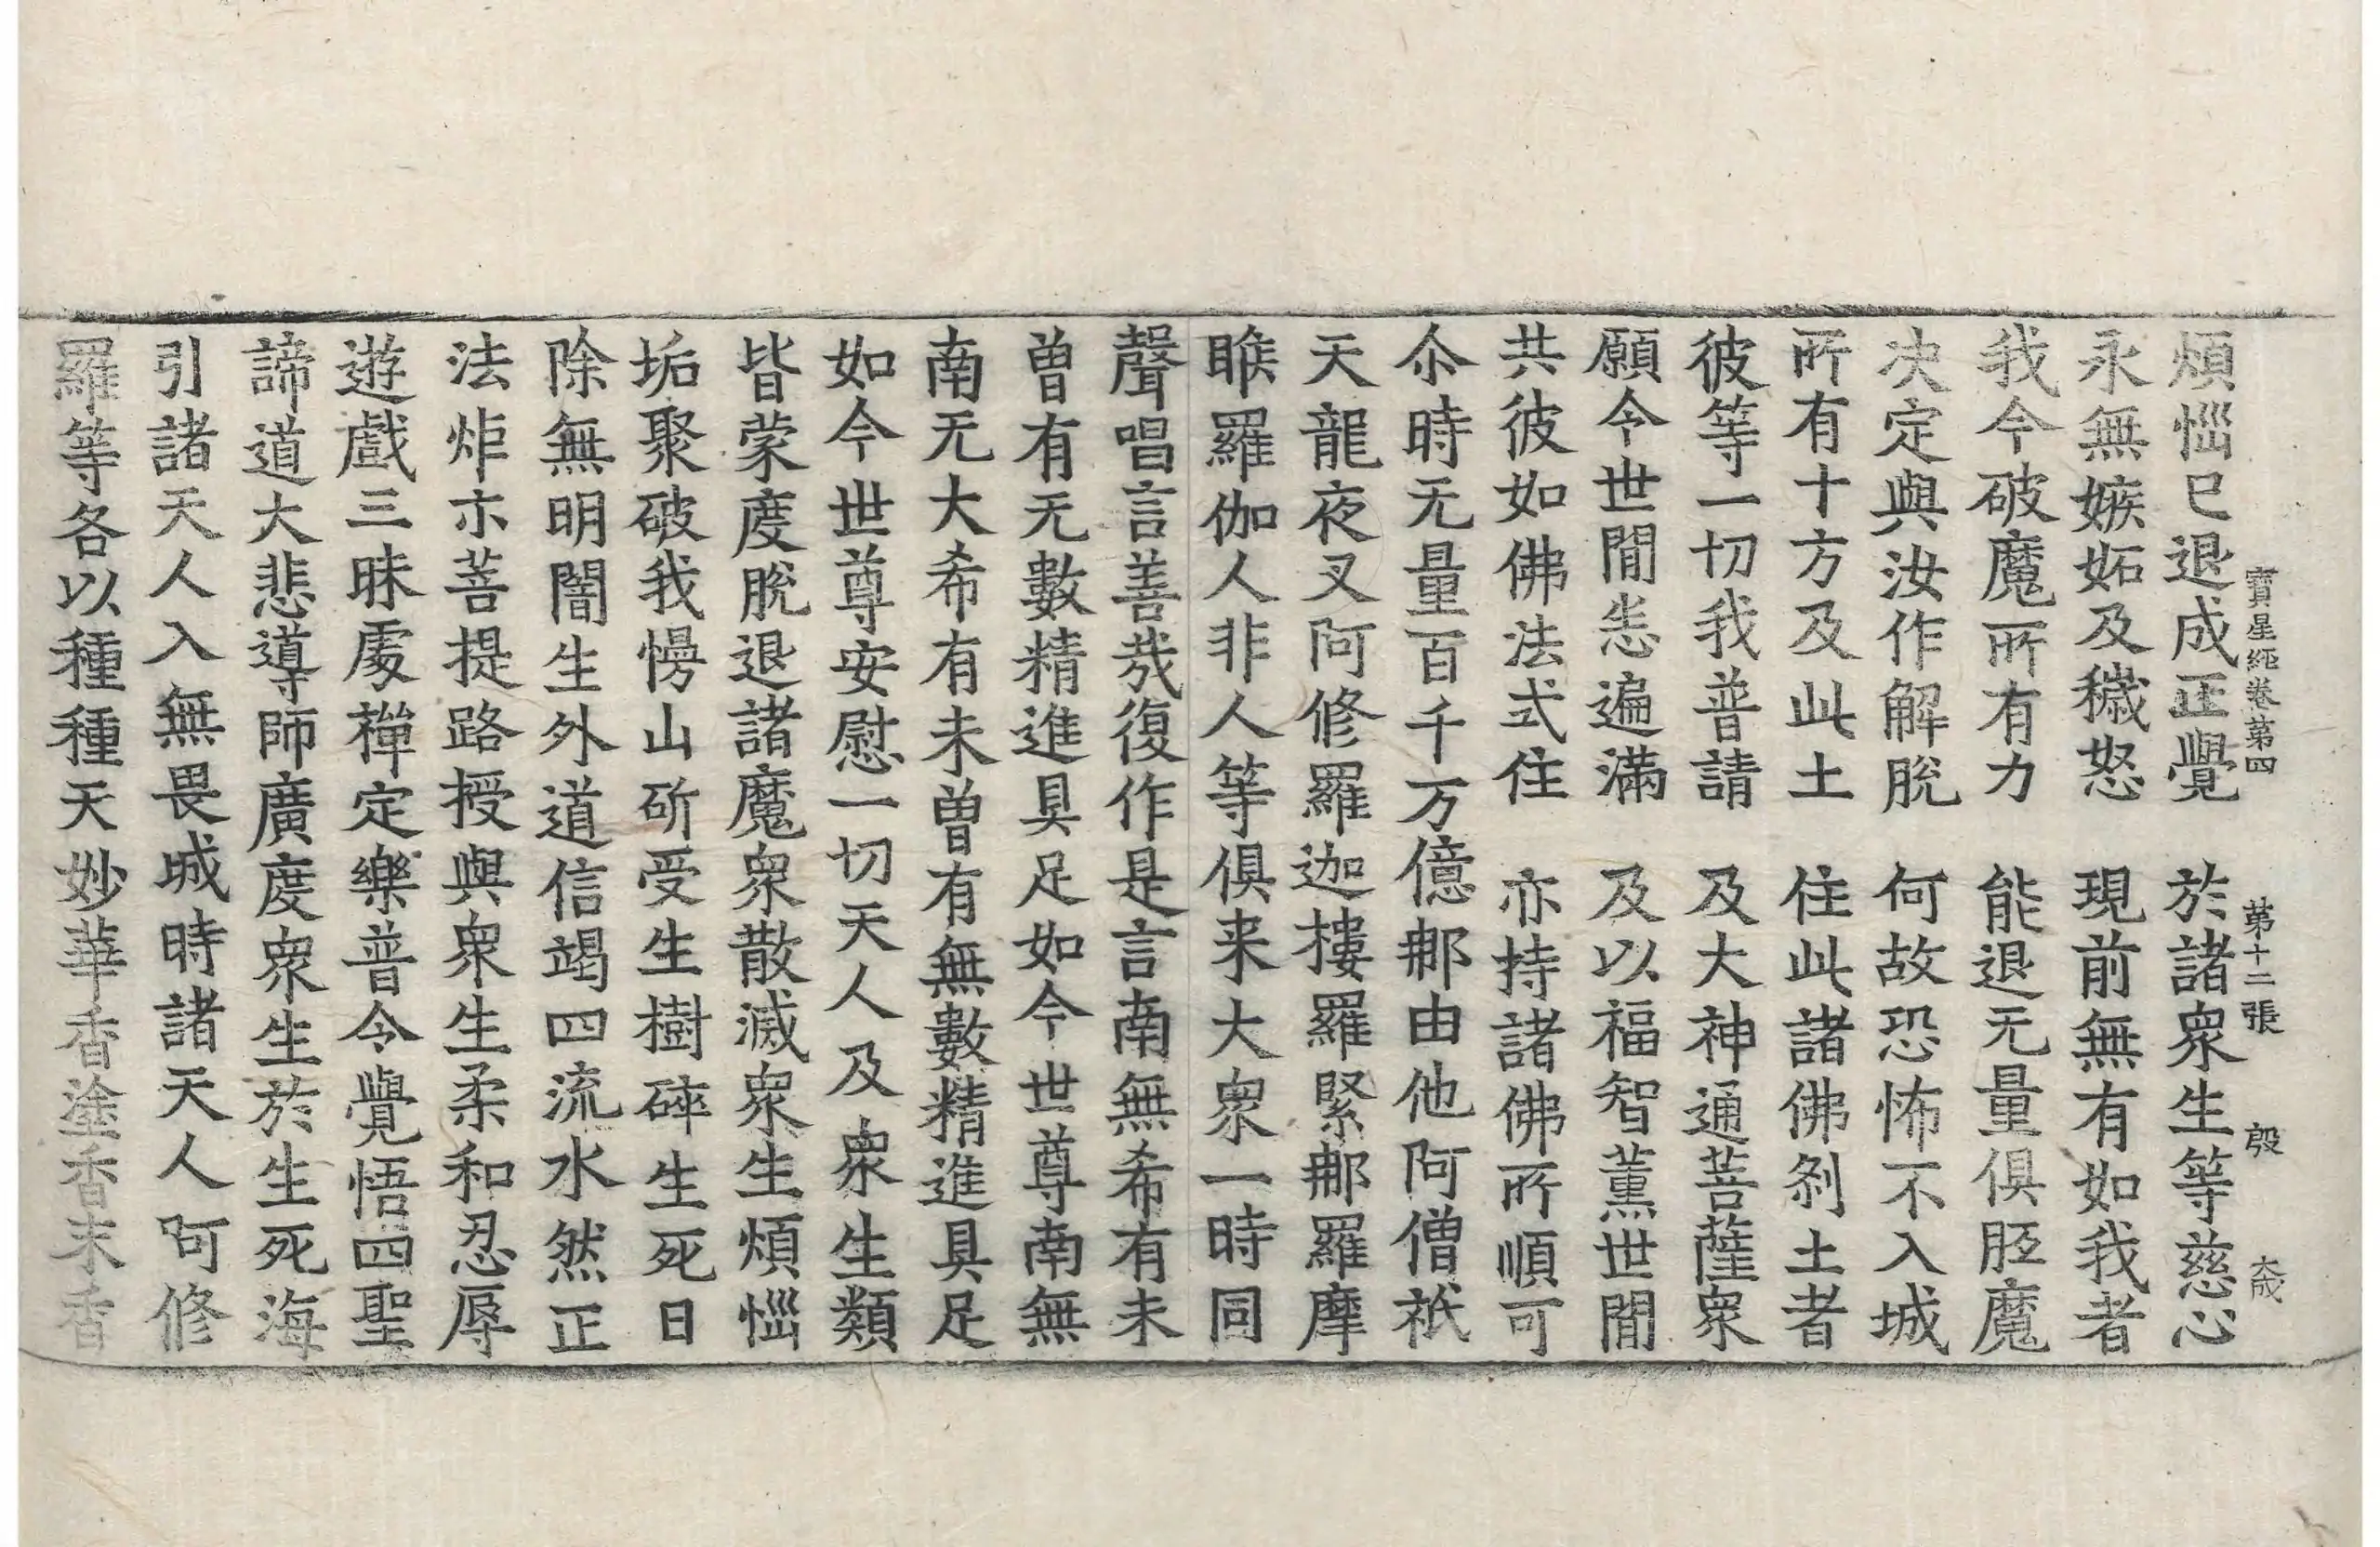 寶星経卷第四 第十二張 㱿 大成
煩惱已退成正覺 於諸衆生等慈心
永無嫉妬及穢怒 現前無有如我者
我今破魔所有力 能退无量俱胝魔
决定與汝作解脫 何故恐怖不入城
所有十方及此土 住此諸佛刹土者
彼等一切我普請 及大神通菩薩衆
願今世閒恙遍滿 及以福智薫世閒
共彼如佛法式住 亦持諸佛所順可
尒時无量百千万億那由他阿僧祇
天龍夜叉阿修羅迦樓羅緊那羅摩
睺羅伽人非人等俱来大衆一時同
聲唱言善哉復作是言南無希有未
曾有无數精進具足如今世尊南無
南无大希有未曾有無數精進具足
如今世尊安慰一切天人及衆生類
皆蒙度脫退諸魔衆散滅衆生煩惱
垢聚破我慢山斫受生樹碎生死日
除無明闇生外道信竭四流水然正
法炬示菩提路授與衆生柔和忍辱
遊戲三昧處禪定樂普令覺悟四聖
諦道大悲導師廣度衆生於生死海
引諸天人入無畏城時諸天人阿修
羅等各以種種天妙華香塗香末香